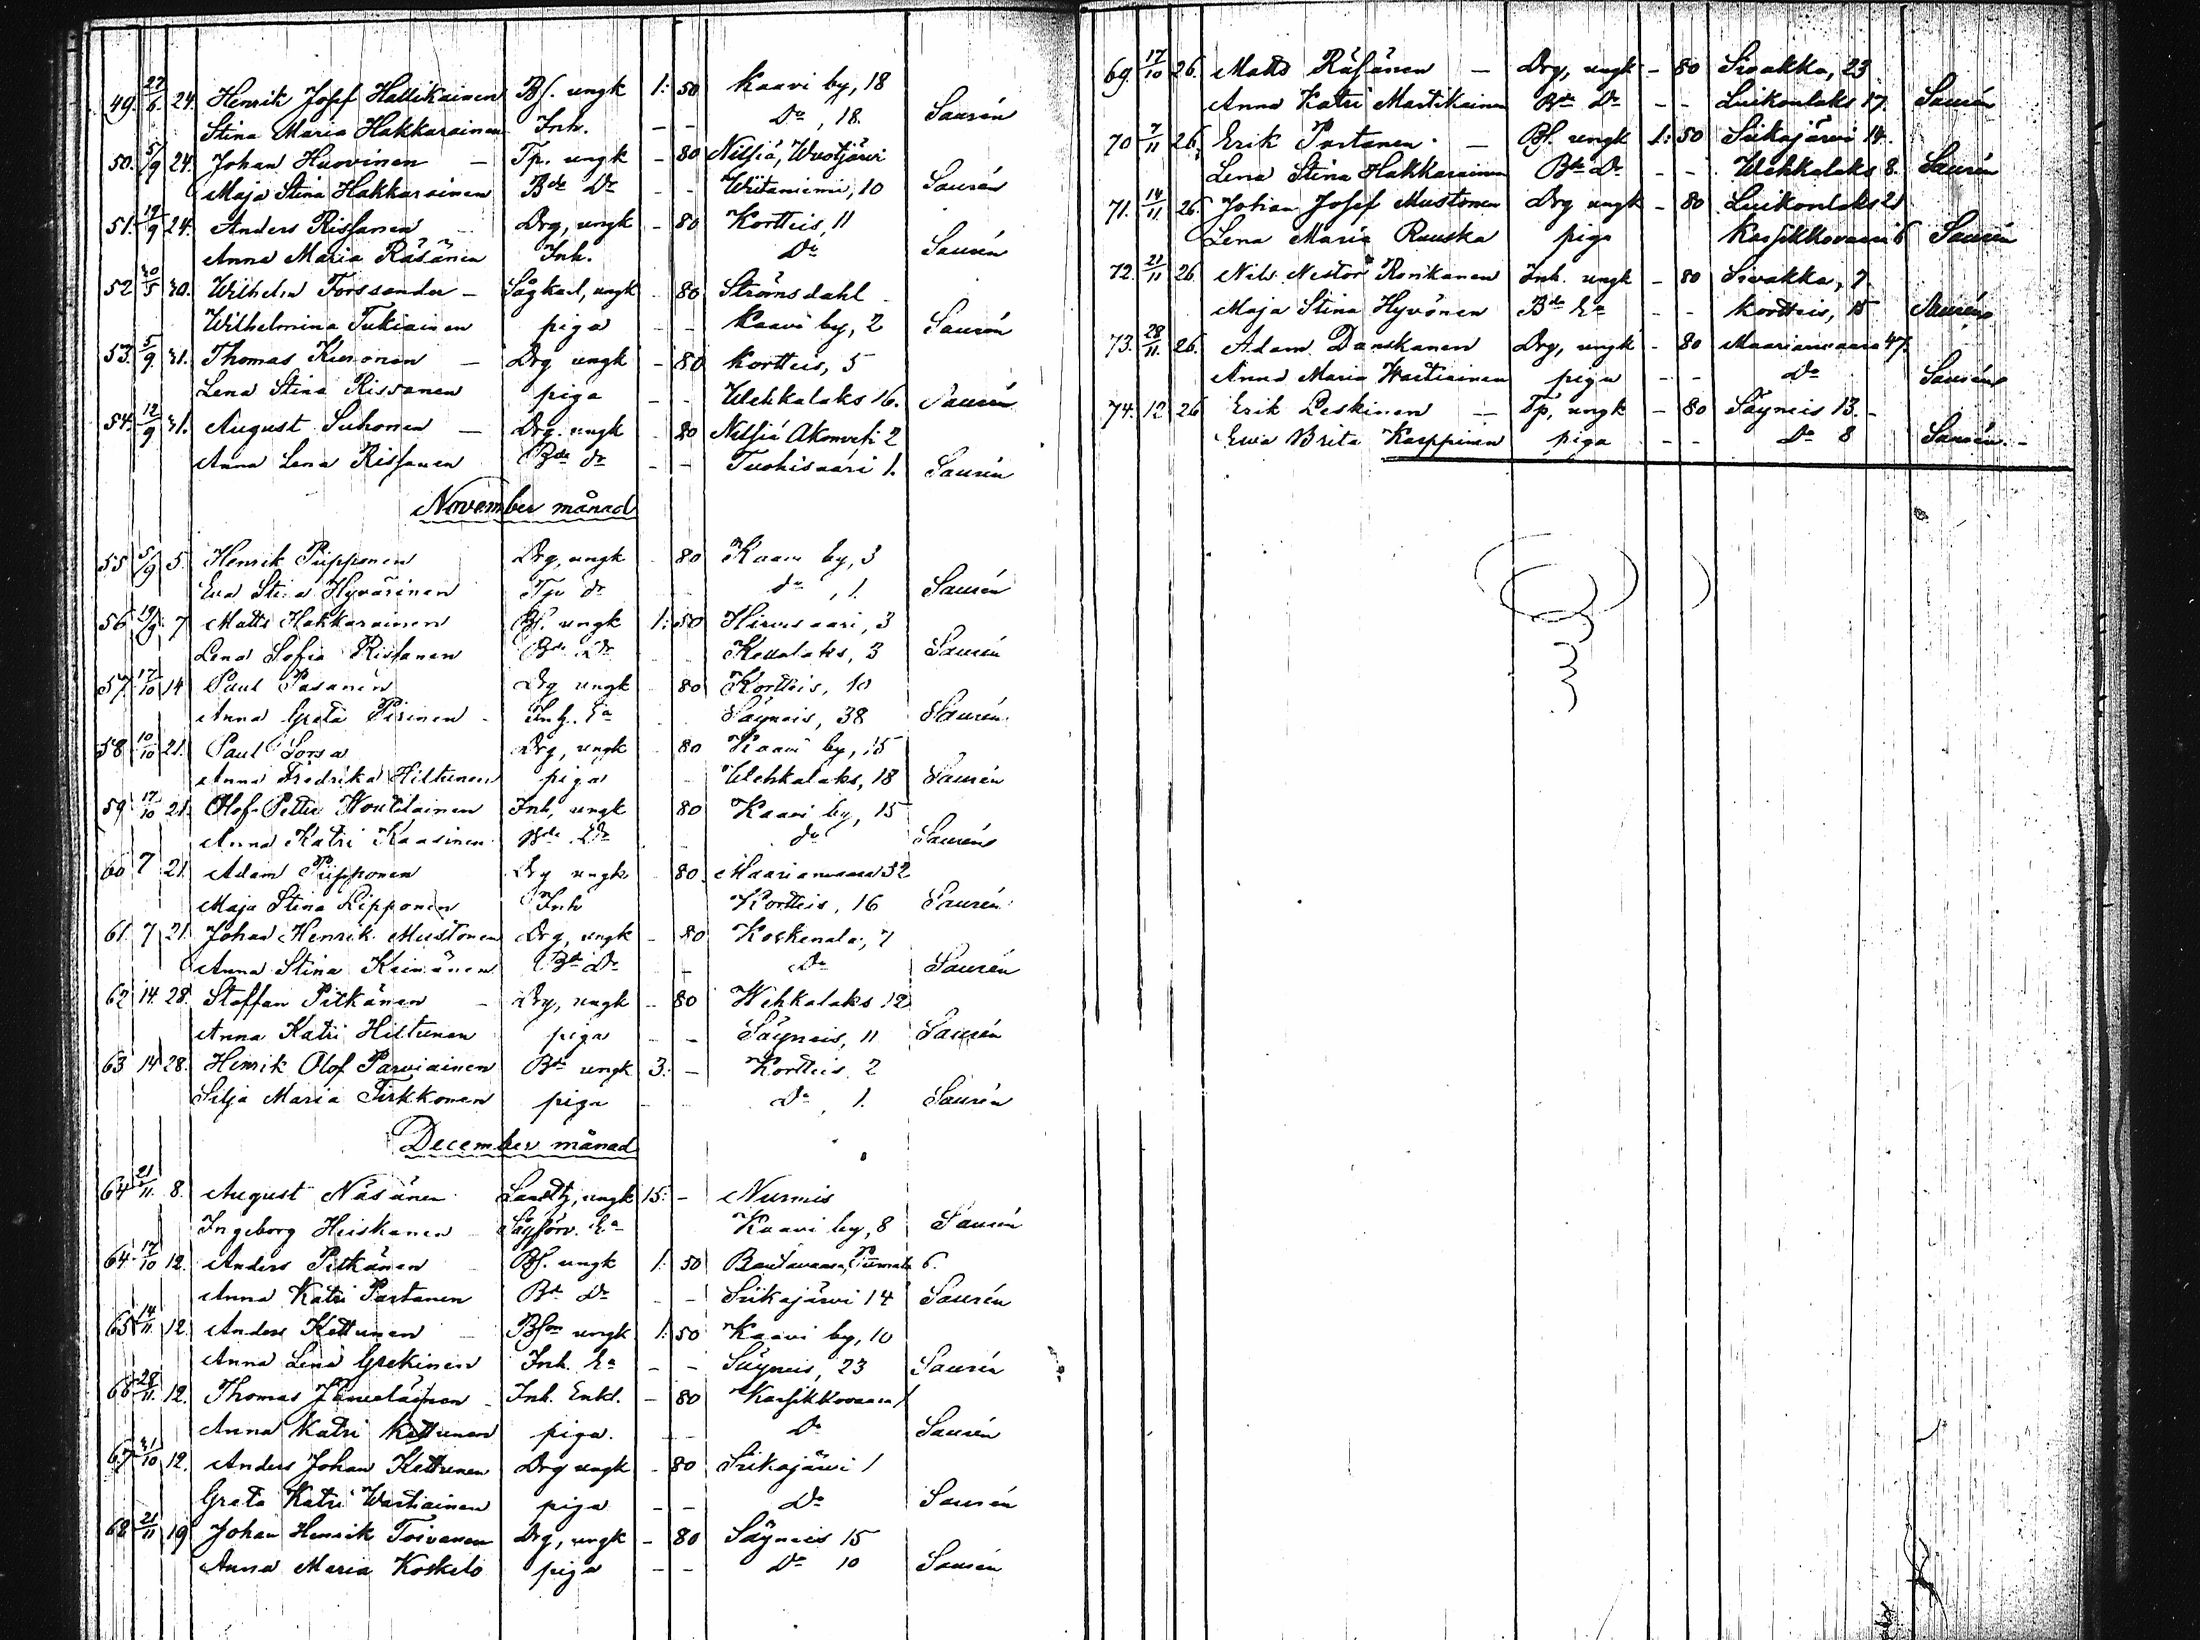 49. 27/6. 24. Henrik Josef Hallikainen Bf. ungk 1: 50 Kaavi by, 18
Stina Maria Hakkarainen Inh. - - Do, 18. Saurén
50. 5/9 24. Johan Huovinen - Tp. ungk - 80 Nilsiä, Wuotjärvi
Maja Stina Hakkarainen Bde Dr - - Writaniemi, 10 Saurén
51. 19/9 24. Anders Rissanen - Drg, ungk - 80 Kortteis, 11
Anna Maria Räsänen Inh. Do Saurén
52 30/5 30. Wilhelm Forssander - Sågkarl, ungk - 80 Strömsdahl
Wilhelmina Tukiainen piga - - Kaavi by, 2 Saurén
53. 5/9. 31. Thomas Kinonen - Drg ungk - 80 Kortteis, 5
Lena Stina Rissanen piga - - Wehkalaks 16. Saurén
54. 12/9 31. August Suhonen - Drg. ungk - 80 Nilsiä Akonvesi 2
Anna Lena Rissanen Bde dr - - Tuohisaari 1. Saurén
November månad
55 5/9 5. Henrik Piipponen Drg, ungk - 80 Kaavi by, 3
Eva Stina Hyvärinen Tp dr do, 1. Saurén
56 19/9. 7 Matts Hakkarainen Bf. ungk 1: 50 Hirvisaari, 3
Lena Sofia Rissanen Bde Dr Kevalaks, 3 Saurén
57. 17/10 14 Paul Pasanen Drg ungk - 80 Kortteis, 10
Anna Greta Pirinen - Inh. Ea Säyneis, 38 Saurén
58 10/10 21. Paul Sorsa Drg, ungk - 80 Kaavi by, 15
Anna Fredrika Hiltunen piga - Wehkalaks, 18 Saurén
59 17/10 21. Olof Petter Woutilainen Inh, ungk 80 Kaavi by, 15
Anna Katri Kaasinen Bde Dr - do Saurén
60 7 21. Adam Piipponen Drg ungk 80 Maarianvaara 32
Maja Stina Lipponen Inh Kortteis, 16 Saurén
61. 7 21. Johan Henrik Mustonen Drg, ungk - 80 Koskenala, 7
Anna Stina Keinänen Bde Dr - Do Saurén
62 14. 28. Staffan Pitkänen - Drg, ungk - 80 Wehkalaks 12
Anna Katri Hiltunen piga - - Säyneis, 11 Saurén
63 14 28. Henrik Olof Parviainen Bde ungk 3: - Kortteis. 2
Silja Maria Tirkkonen piga - - Do, 1. Saurén
December månad
64 21/11. 8. August Näsänen Landtj, ungk 15: - Nurmis
Ingeborg Heiskanen - Ea Kaavi by, 8 Saurén
64. 17/10 12. Anders Pitkänen Bf. ungk 1: 50 Rautavaara, 6.
Anna Katri Partanen Bde Dr - - Siikajärvi 14 Saurén
65 14/11 12. Anders Kettunen - Bson ungk 1: 50 Kaavi by, 10
Anna Lena Grekinen Inh. Ea - - Säyneis, 23 Saurén
66 28/11. 12. Thomas Jämeläinen - Inh. Enkl. - 80 Karsikkovaara 1
Anna Katri Kettunen piga. - - Do Saurén
67 31/10 12. Anders Johan Kettunen Drg ungk - 80 Siikajärvi 1
Greta Katri Wartiainen piga - - Do Saurén
68 21/11 19 Johan Henrik Toivanen Drg, ungk - 80 Säyneis 15
Anna Maria Koskelo piga - - Do 10 Saurén
69. 17/10 26. Matts Räsänen - Drg, ungk - 80 Sivakka, 23
Anna Katri Martikainen Bde Dr - - Luikonlaks 17. Saurén
70 7/11 26. Erik Partanen - Bf. ungk 1: 50 Siikajärvi 14.
Lena Stina Hakkarainen Bde Dr - - Wehkalaks 8. Saurén
71. 14/11. 26. Johan Josef Mustonen Drg ungk - 80 Luikonlaks 21
Lena Maria Ruuska piga Karsikkovaara 6 Saurén
72. 21/11 26 Nils Nestor Ronkanen Inh. ungk - 80 Sivakka, 7.
Maja Stina Hyvönen Bde Ea - - Kortteis, 15 Saurén
73. 28/11. 26. Adam Danskanen Drg, ungk - 80 Maarianvaara 47.
Anna Maria Wartiainen piga - - Do Saurén
74. 12 26 Erik Leskinen - Tp, ungk - 80 Säyneis 13. -
Ewa Brita Karppinen piga - - Do 8 Saurén. -